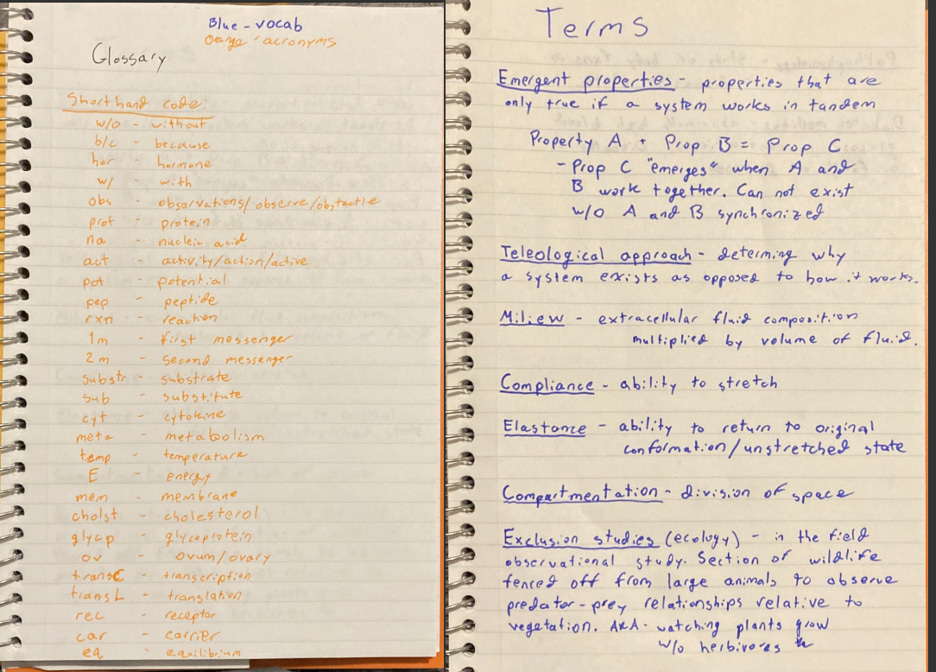 Blue - vocab
Oange - acronyms
Glossary
Shorthand code:
w/o - without
b/c - because
hor - hormone
w/ - with
obs - observations/observe/obstacle
prot - protein
na - nucleic acid
act - activity/action/active
pot - potential
pep - peptide
rxn - reaction
1m - first messenger
2m - second messenger
substr - substrate
sub - substitute
cyt - cytokine
meta - metabolism
temp - temperature
E - energy
mem - membrane
cholst - cholesterol
glycp - glycoprotein
ov - ovum/ovary
transC - transcription
transL - translation
rec - receptor
car - carrier
eq - equilibrium
Terms
Emergent properties - properties that are
only true if a system works in tandem
Property A + Prop B = Prop C
- Prop C "emerges" when A and
B work together. Can not exist
w/o A and B synchronized
Teleological approach - determing why
a system exists as opposed to how it works.
Miliew - extracellular fluid composition
multiplied by volume of fluid.
Compliance - ability to stretch
Elastance - ability to return to original
conformation/unstretched state
Compartmentation - division of space
Exclusion studies (ecology) - in the field
observational study. Section of wildlife
fenced off from large animals to observe
predator-prey relationships relative to
vegetation. AKA - watching plants grow
w/o herbivores